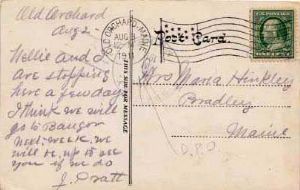 Old Orchard
Aug 2
Nellie and I
are stopping
here a few days
I think we will
go to Bangor
next week. we
will be up to see
you if we do
J. Pratt
THIS SIDE FOR MESSAGE
OLD ORCHARD, MAINE
AUG
Post Card
Mrs Maria Hinkley
Bradley
Maine